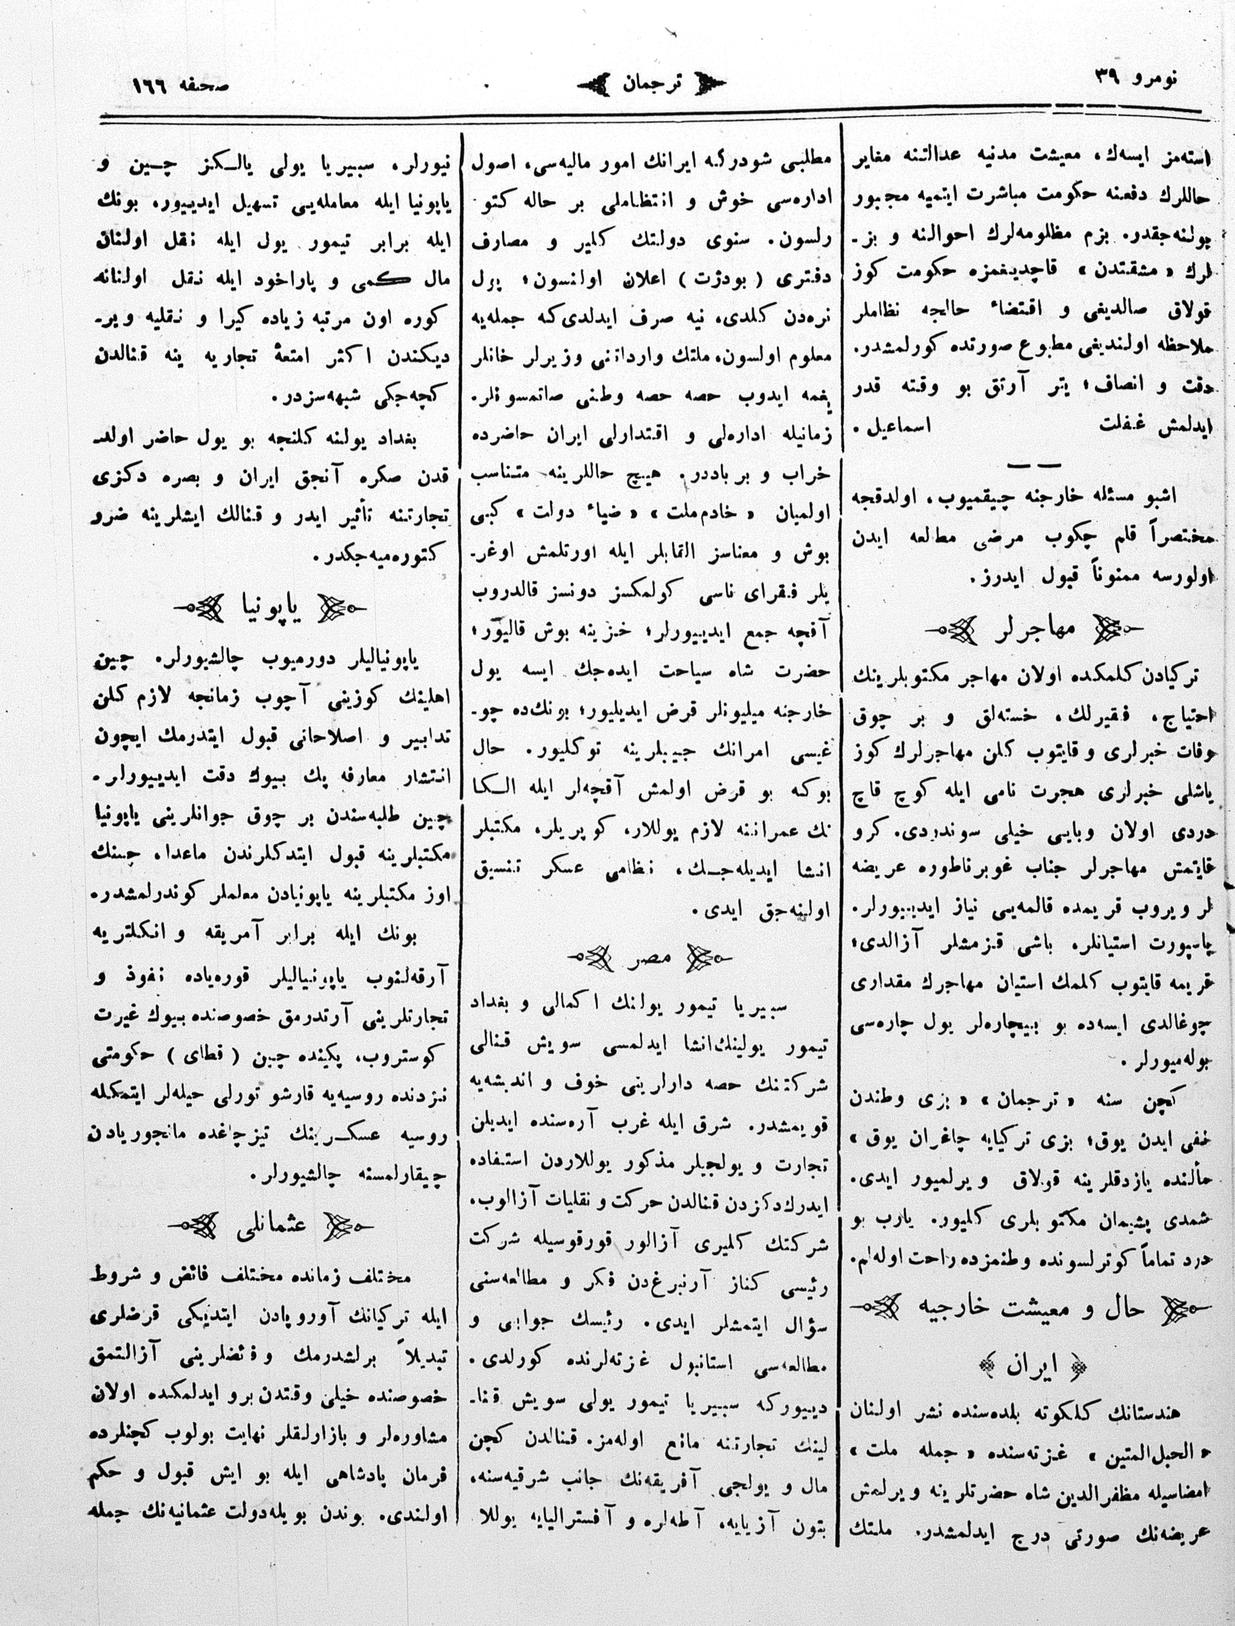 نومرو ٣٩
ترجمان
صحیفه ١٦٦
استه‌مز ایسه‌ك، معیشت مدنیه عدالتنه مغایر
حاللرك دفعنه حكومت مباشرت ایتمیه مجبور
بولنه‌جقدر. بزم مظلومه‌لرك احوالنه و بزـ
لرك « مشقتدن » قاچدیغمزه حكومت كوز
قولاق صالدیغی و اقتضاء حالجه نظاملر
ملاحظه اولندیغی مطبوع صورتده كورلمشدر.
دقت و انصاف؛ یتر آرتق بو وقته قدر
ایدلمش غفلت اسماعیل.
اشبو مسئله خارجنه چیقمیوب، اولدقجه
مختصراً قلم چكوب مرضی مطالعه ایدن
اولورسه ممنوناً قبول ایدرز.
مهاجرلر
تركیادن كلمكده اولان مهاجر مكتوبلرینك
احتیاج، فقیرلك، خسته‌لق و بر چوق
وفات خبرلری و قایتوب كلن مهاجرلرك كوز
یاشلی خبرلری هجرت نامی ایله كوچ قاچ
دردی اولان وبایی خیلی سوندردی. كرو
قایتمش مهاجرلر جناب غوبرناطوره عریضه
لر ویروب قریمده قالمه‌یی نیاز ایدییورلر.
پاسپورت استیانلر، باشی قزمشلر آزالدی؛
قریمه قایتوب كلمك استیان مهاجرك مقداری
چوغالدی ایسه‌ده بو بیچاره‌لر یول چاره‌سی
بوله‌میورلر.
كچن سنه « ترجمان » « بزی وطندن
نفی ایدن یوق؛ بزی تركیایه چاغران یوق »
مألنده یازدقلرینه قولاق ویرلمیور ایدی.
شمدی پشیمان مكتوبلری كلیور. یارب بو
درد تماماً كوترلسونده وطنمزده راحت اوله‌لم.
حال و معیشت خارجیه
ایران
هندستانك كلكوته بلده‌سنده نشر اولنان
« الحبل‌المتین » غزته‌سنده « جمله ملت »
امضاسیله مظفرالدین شاه حضرتلرینه ویرلمش
عریضه‌نك صورتی درج ایدلمشدر. ملتك
مطلبی شودركه ایرانك امور مالیه‌سی، اصول
اداره‌سی خوش و انتظاملی بر حاله كتو
رلسون. سنوی دولتك كلیر و مصارف
دفتری ( بودژت ) اعلان اولنسون؛ پول
نره‌دن كلدی، نیه صرف ایدلدی‌كه جمله‌یه
معلوم اولسون، ملتك وارداتنی وزیرلر خانلر
یغمه ایدوب حصه حصه وطنی صاتمسونلر.
زمانیله اداره‌لی و اقتدارلی ایران حاضرده
خراب و بر باددر. هیچ حاللرینه متناسب
اولمیان « خادم ملت » « ضیاء دولت » كبی
بوش و معناسز القابلر ایله اورتلمش اوغرـ
یلر فقرای ناسی كولمكسز دونسز قالدروب
آقچه جمع ایدییورلر؛ خزینه بوش قالیور؛
حضرت شاه سیاحت ایده‌جك ایسه یول
خارجنه میلیونلر قرض ایدیلیور؛ بونكده چوـ
غیسی امرانك جیبلرینه توكلیور. حال
بوكه بو قرض اولمش آقچه‌لر ایله الـكا
نك عمراننه لازم یوللار، كوپریلر، مكتبلر
انشا ایدیله‌جـك، نظامی عسكر تنسیق
اولنه‌جق ایدی.
مصر
سبیریا تیمور یولنك اكمالی و بغداد
تیمور یولینك‌انشا ایدلمسی سویش قنالی
شركتنك حصه دارلرینی خوف و اندیشه‌یه
قویمشدر. شرق ایله غرب آره‌سنده ایدیلن
تجارت و یولجیلر مذكور یوللاردن استفاده
ایدرك‌دكزدن قنالدن حركت و نقلیات آزالوب،
شركتك كلیری آزالور قورقوسیله شركت
رئیسی كناز آرنبرغ‌دن فكر و مطالعه‌سنی
سؤال ایتمشلر ایدی. رئیسك جوابی و
مطالعه‌سی استانبول غزته‌لرنده كورلدی.
دییوركه سبیریا تیمور یولی سویش قناـ
لینك تجارتنه مانع اوله‌مز. قنالدن كچن
مال و یولجی آفریقه‌نك جانب شرقیه‌سنه،
بتون آزیایه، آطه‌لره و آفسترالیایه یوللا
نیورلر. سبیریا یولی یالـكز چـین و
یاپونیا ایله معامله‌یی تسهیل ایدییور. بونك
ایله برابر تیمور یول ایله نقل اولنان
مال كمی و پاراخود ایله نقل اولنانه
كوره اون مرتبه زیاده كیرا و نقلیه ویرـ
دیكندن اكثر امتعهٔ تجاریه ینه قنالدن
كچه‌جكی شبهه‌سزدر.
بغداد یولنه كلنجه بو یول حاضر اولدـ
قدن صكره آنجق ایران و بصره دكزی
تجارتنه تأثیر ایدر و قنالك ایشلرینه ضرو
كتوره‌میه‌جكدر.
یاپونیا
یاپونیالیلر دورمیوب چالشیورلر. چین
اهلینك كوزینی آچوب زمانجه لازم كلن
تدابیر و اصلاحاتی قبول ایتدرمك ایچون
انتشار معارفه پك بیوك دقت ایدییورلر.
چین طلبه‌سندن بر چوق جوانلرینی یاپونیا
مكتبلرینه قبول ایتدكلرندن ماعدا، چینك
اوز مكتبلرینه یاپونیادن معلملر كوندرلمشدر.
بونك ایله برابر آمریقه و انكلتریه
آرقه‌لنوب یاپونیالیلر قوره‌یاده نفوذ و
تجارتلرینی آرتدرمق خصوصنده بیوك غیرت
كوستروب، پكینده چین ( قطای ) حكومتی
نزدنده روسیه‌یه قارشو تورلی حیله‌لر ایتمكله
روسیه عسكـرینك تیزجاغده مانجوریادن
چیقارلمسنه چالشیورلر.
عثمانلی
مختلف زمانده مختلف فائض و شروط
ایله تركیانك آوروپادن ایتدیكی قرضلری
تبدیلاً برلشدرمك و فائضلرینی آزالتمق
خصوصنده خیلی وقتدن برو ایدلمكده اولان
مشاوره‌لر و بازارلقلر نهایت بولوب كچنلرده
فرمان پادشاهی ایله بو ایش قبول و حكم
اولندی. بوندن بویله‌دولت عثمانیه‌نك جمله